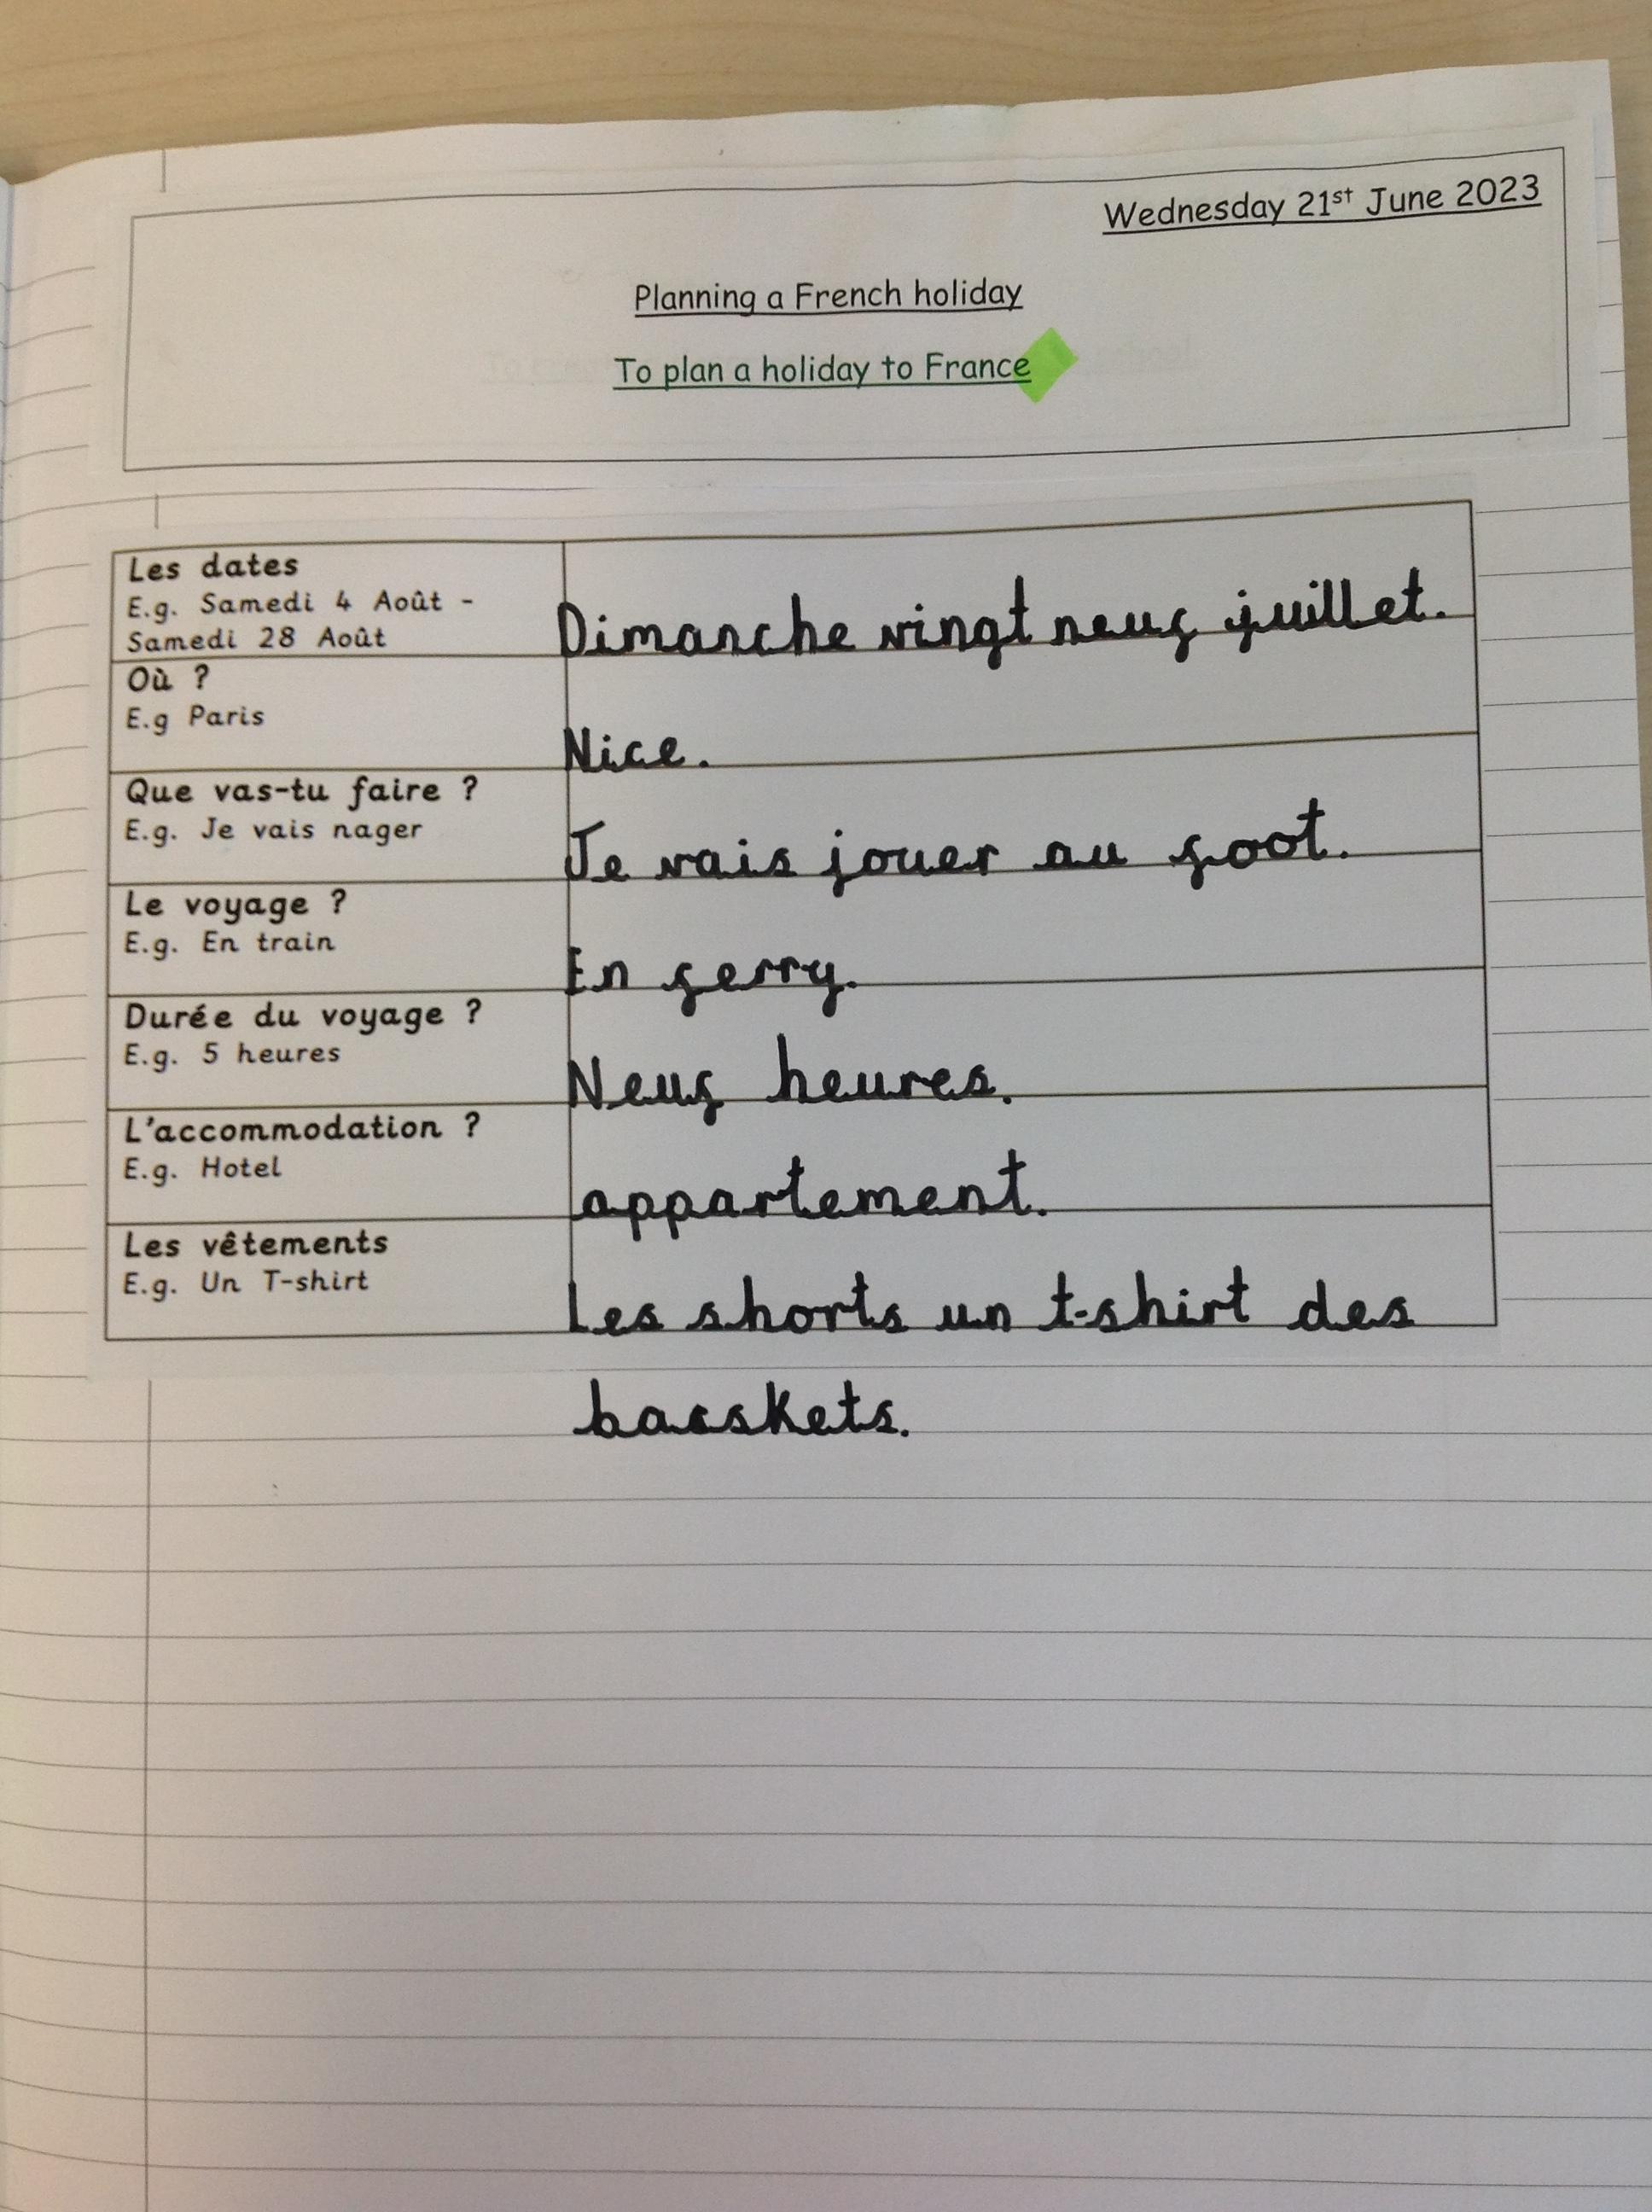 Wednesday 21st June 2023
Planning a French holiday
To plan a holiday to France
Les dates
E.g. Samedi 4 Août -
Samedi 28 Août
Dimanche vingt neuf juillet.
Où ?
E.g Paris
Nice.
Que vas-tu faire ?
E.g. Je vais nager
Je vais jouer au foot.
Le voyage ?
E.g. En train
En ferry.
Durée du voyage ?
E.g. 5 heures
Neuf heures.
L'accommodation ?
E.g. Hotel
appartement.
Les vêtements
E.g. Un T-shirt
Les shorts un t-shirt des
basskets.